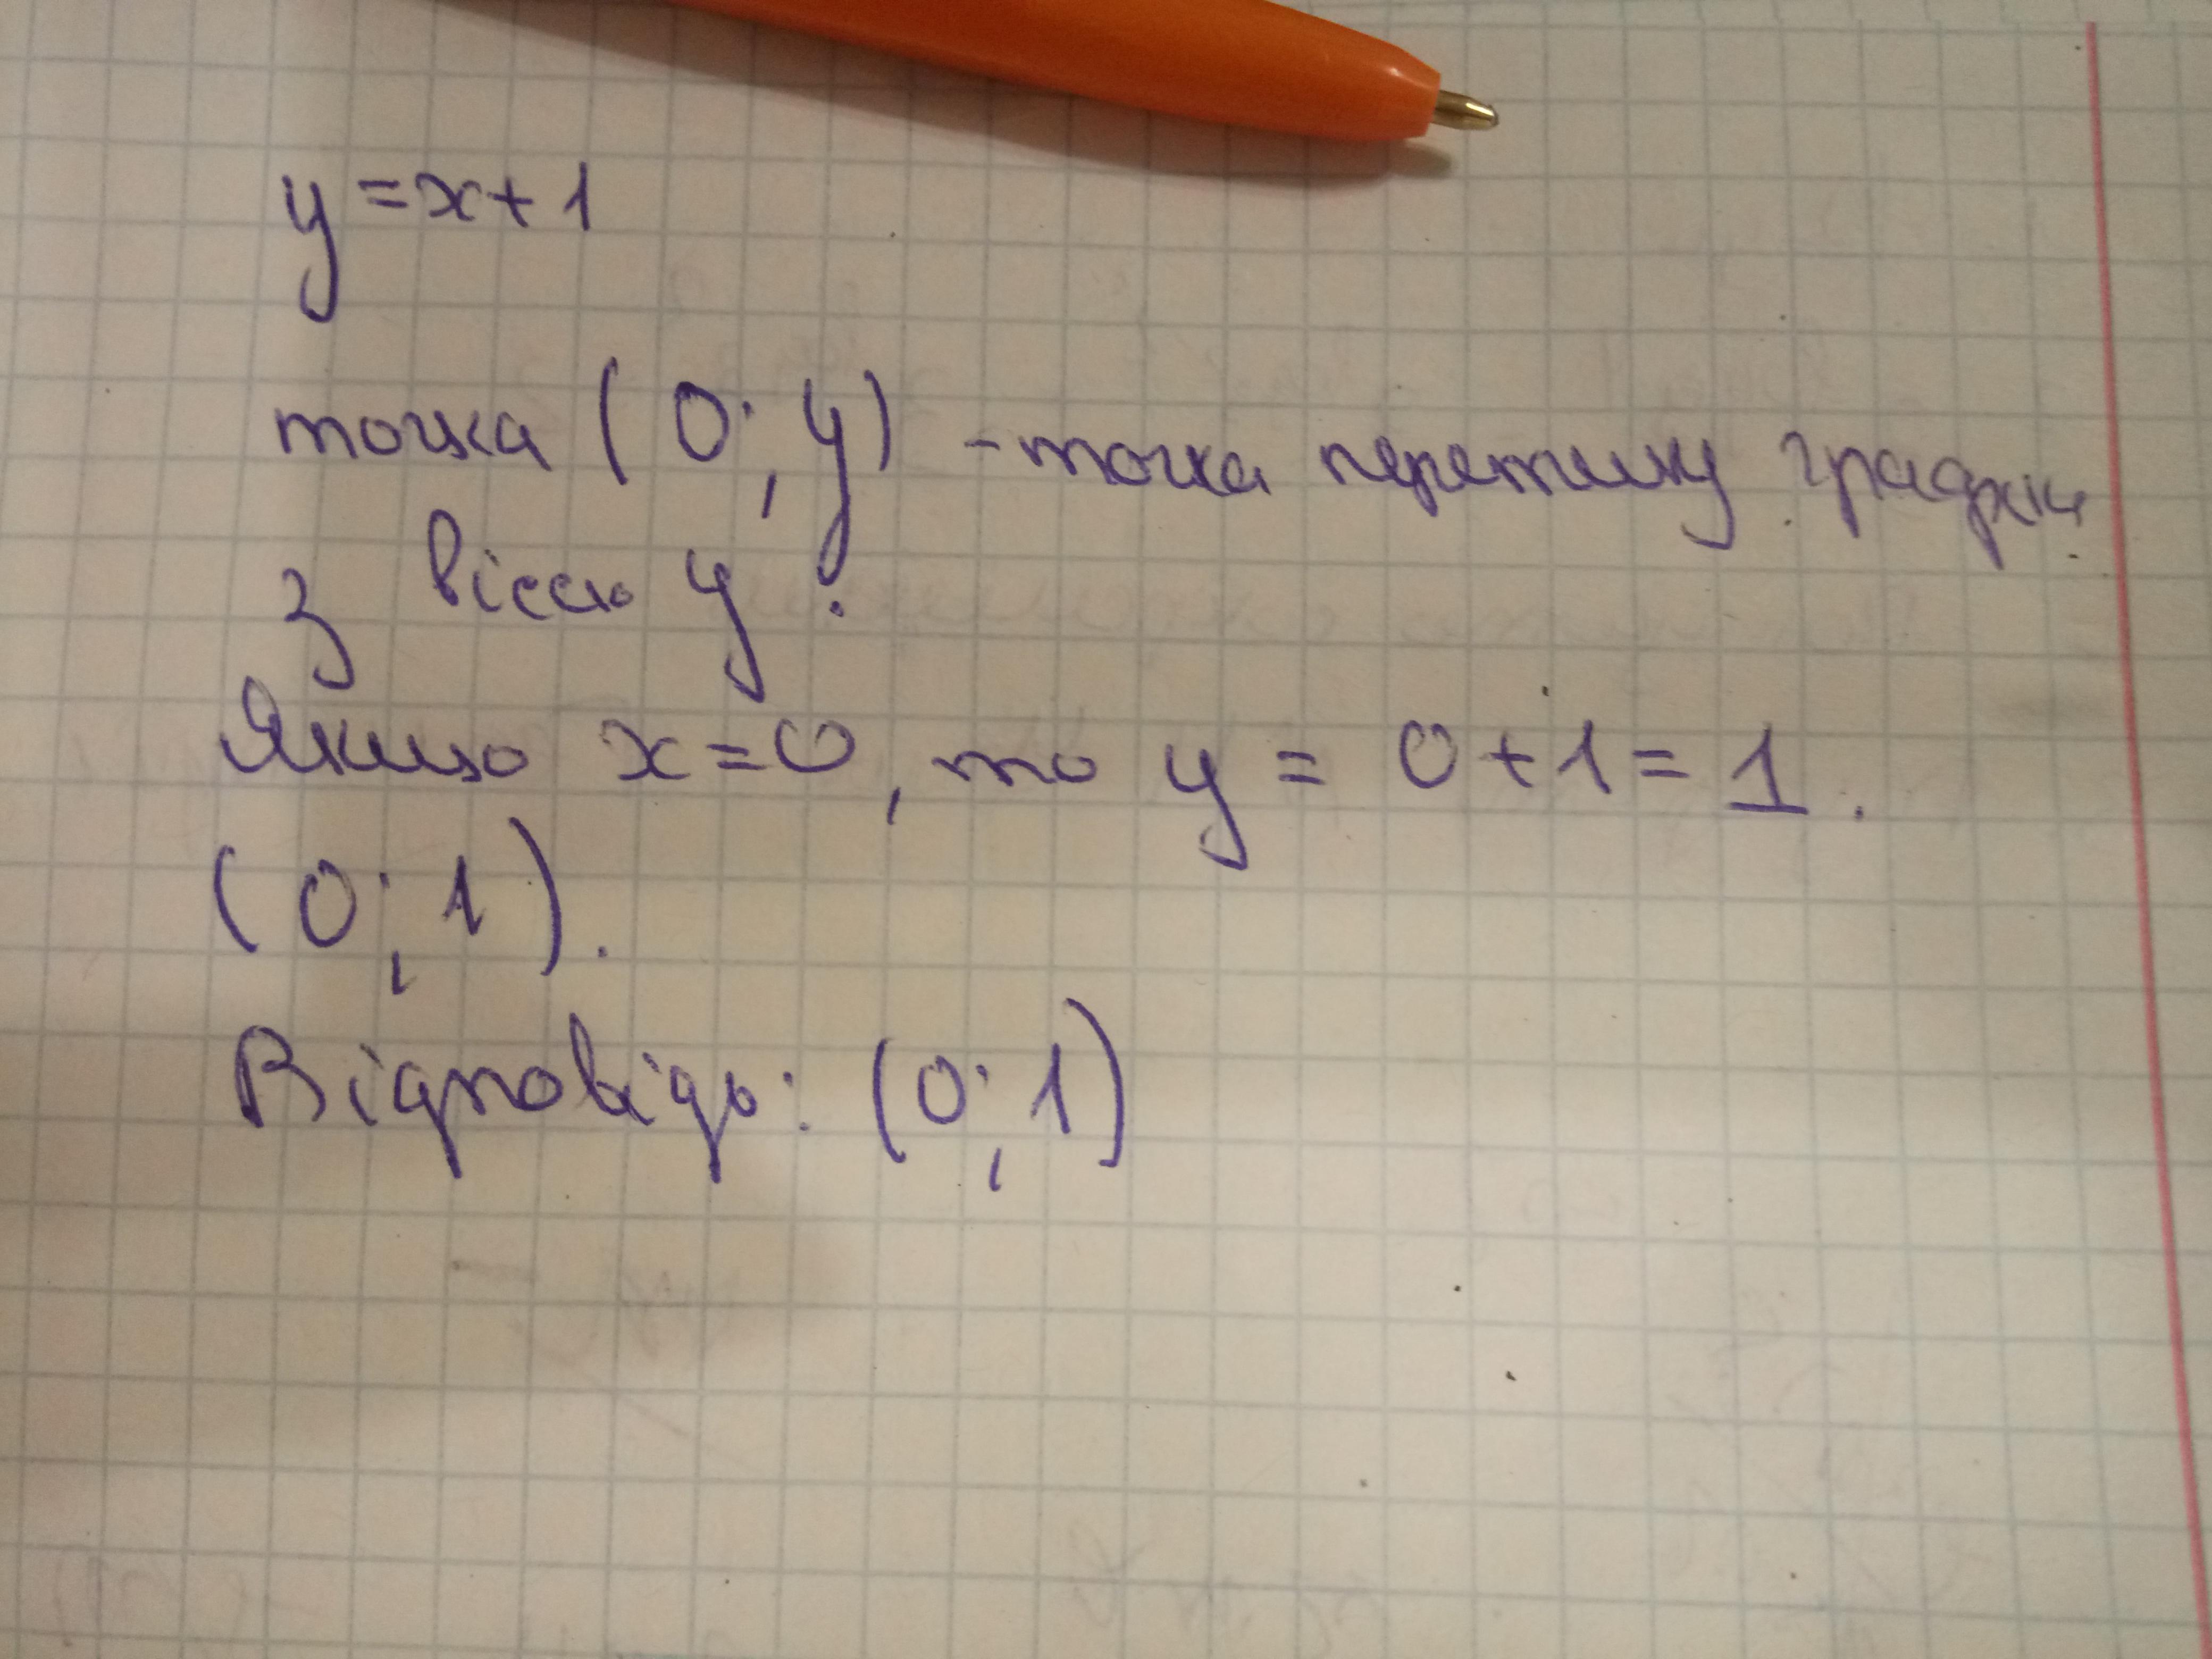 y = x + 1
точка (0; y) - точка перетину графік
з віссю y.
Якщо x = 0, то y = 0 + 1 = 1.
(0; 1).
Відповідь: (0; 1)